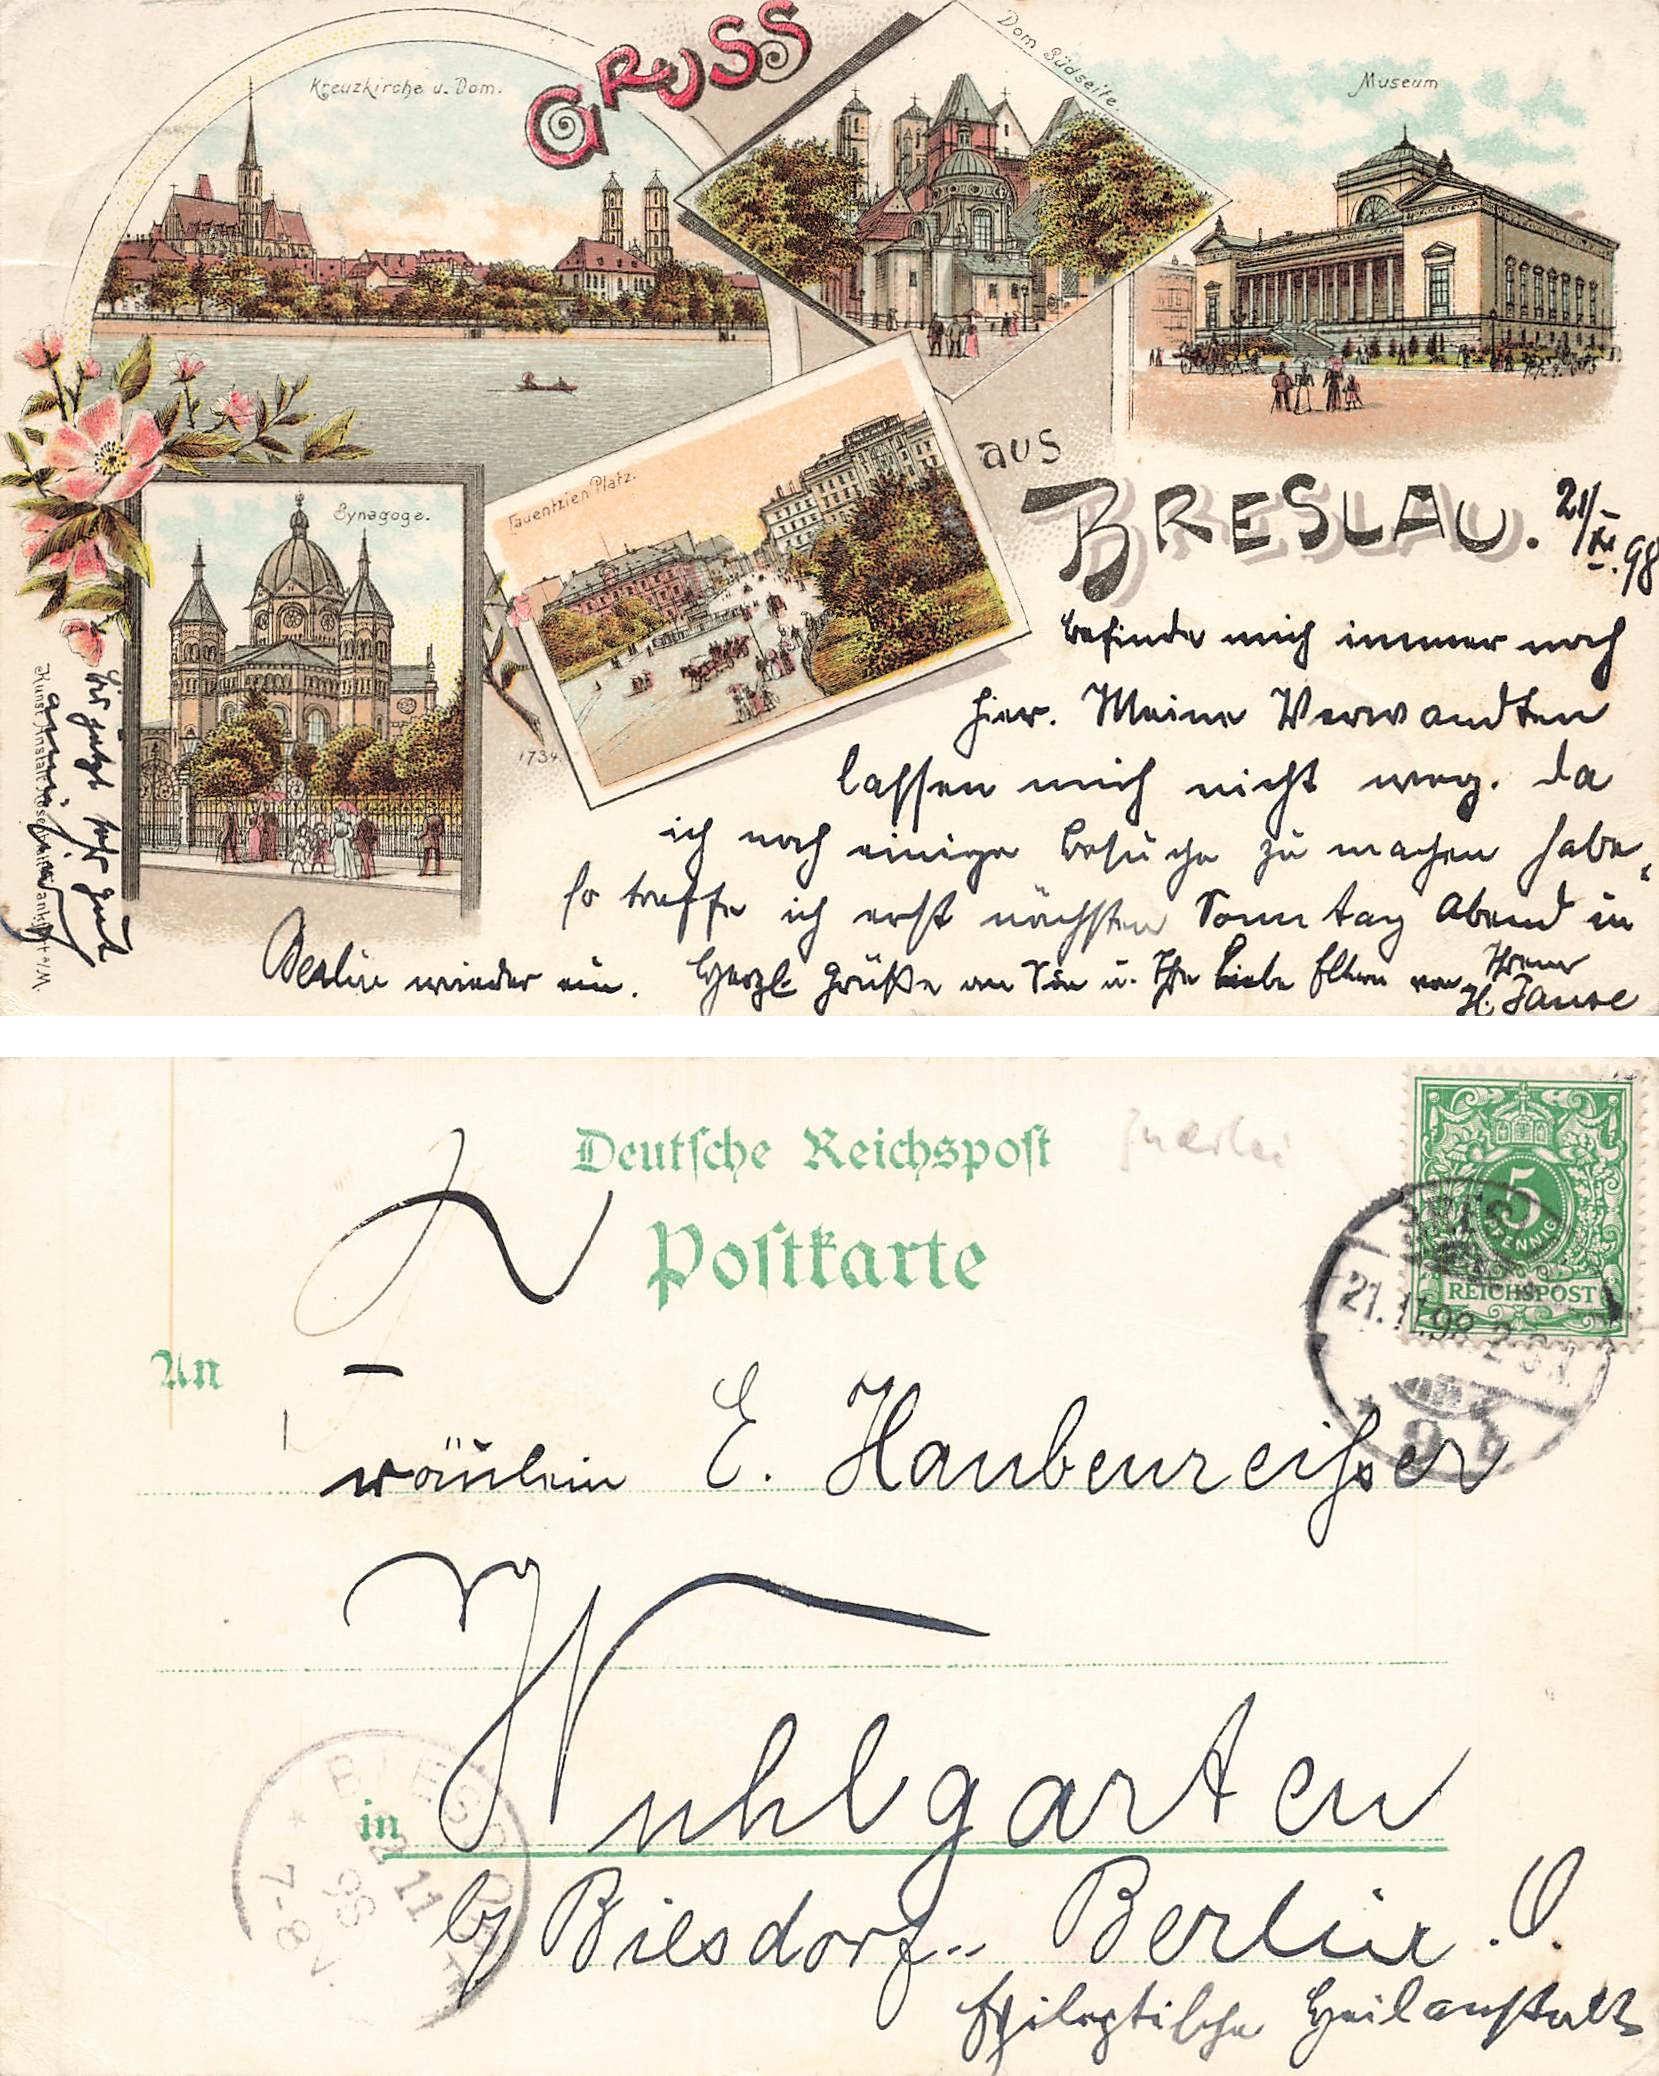 Kreuzkirche u. Dom.
GRUSS
Dom Südseite.
Museum
aus
BRESLAU.
21/XI.98
Synagoge.
Tauentzien Platz.
1734
befinde mich immer noch
hier. Meine Verwandten
lassen mich nicht weg. da
ich noch einige Besuche zu machen habe,
so treffe ich erst nächsten Sonntag Abend in
Berlin wieder ein. Herzl. Grüße an Sie u. Ihre liebe Eltern von Ihrem
H.
bis jetzt sehr gut
Kunst Anstalt Rosenblatt Frankfurt a/M.
Deutsche Reichspost
Postkarte
5
PFENNIG
REICHSPOST
21.11.98
9 b
An
Fräulein E. Haubenreisser
in Wuhlgarten
b/ Biesdorf-- Berlin. O.
Epileptische Heilanstalt
BIESDORF
22 11
98
7-8V.